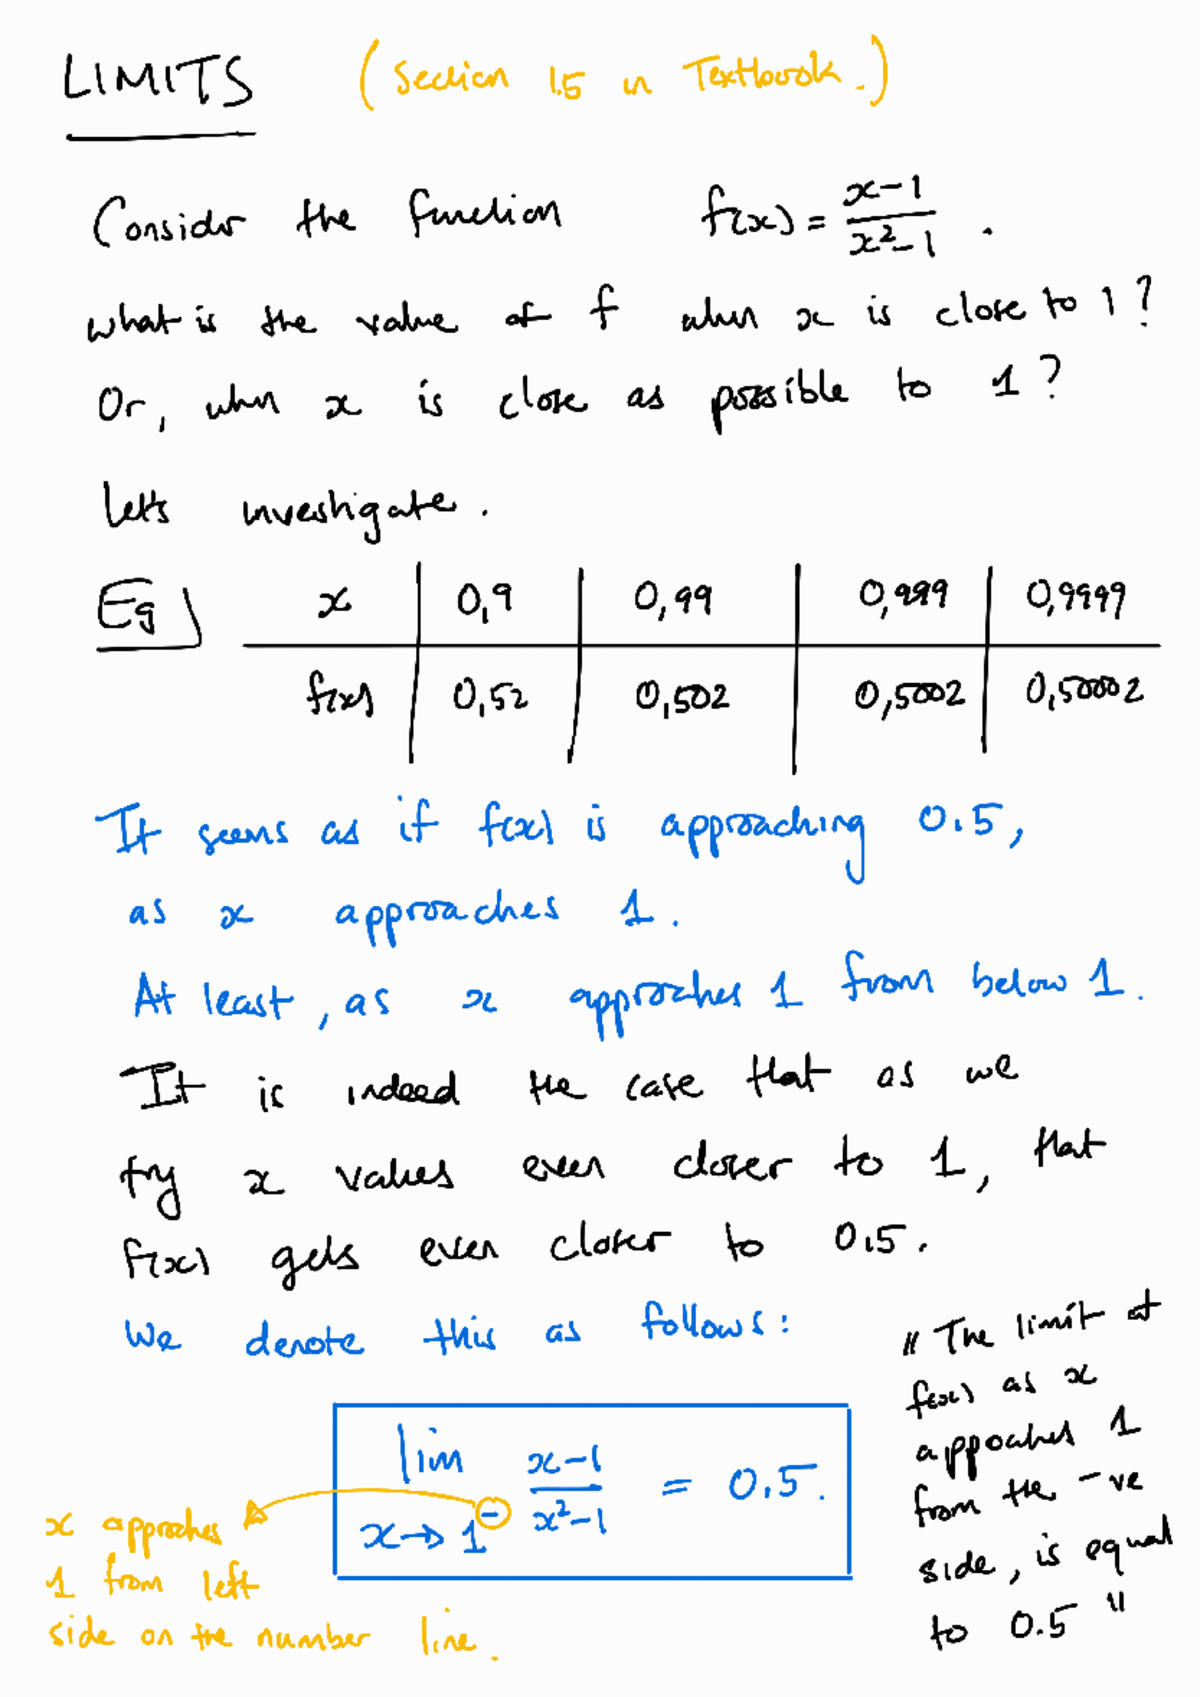 LIMITS (Section 1.5 in Textbook.)
Consider the function f(x) = x-1 / x²-1 .
what is the value of f when x is close to 1?
Or, when x is close as possible to 1?
Lets investigate.
Eg) x | 0,9 | 0,99 | 0,999 | 0,9999
f(x) | 0,52 | 0,502 | 0,5002 | 0,50002
It seems as if f(x) is approaching 0.5,
as x approaches 1.
At least, as x approaches 1 from below 1.
It is indeed the case that as we
try x values even closer to 1, that
f(x) gets even closer to 0.5.
We denote this as follows:
lim x→1⁻ x-1 / x²-1 = 0.5.
x approches
1 from left
side on the number line.
"The limit of
f(x) as x
appoaches 1
from the -ve
side, is equal
to 0.5"